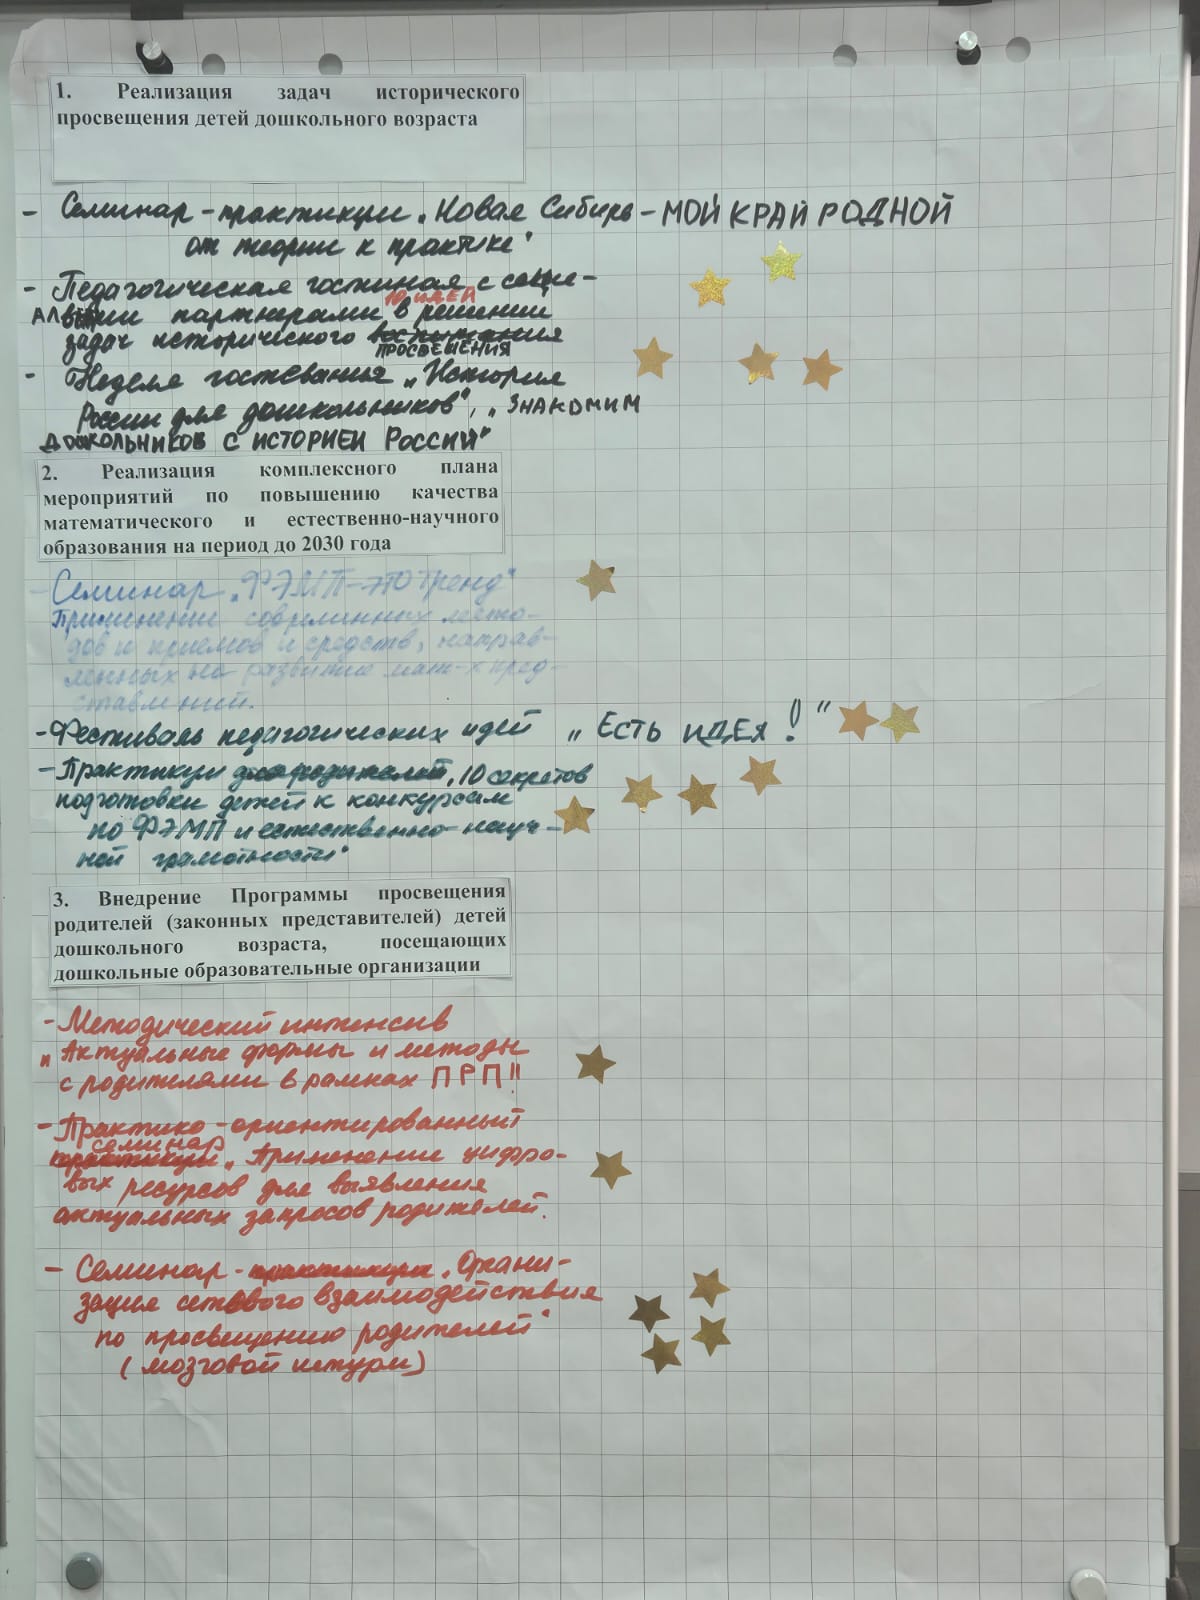 1. Реализация задач исторического
просвещения детей дошкольного возраста
- Семинар-практикум „Новая Сибирь - МОЙ КРАЙ РОДНОЙ
от теории к практике"
- Педагогическая гостиная с соци-
АЛЬНЫМИ партнерами „10 ИДЕЙ в решении
задач исторического
ПРОСВЕЩЕНИЯ
- Неделя гостевания „История
России для дошкольников", „ЗНАКОМИМ
ДОШКОЛЬНИКОВ С ИСТОРИЕЙ РОССИИ"
2. Реализация комплексного плана
мероприятий по повышению качества
математического и естественно-научного
образования на период до 2030 года
- Семинар „ФЭМП-ЭТО Тренд"
Применение современных мето-
дов и приемов и средств, направ-
ленных на развитие мат-х пред-
ставлений.
- Фестиваль педагогических идей „ЕСТЬ ИДЕЯ!"
- Практикум „10 секретов
подготовки детей к конкурсам
по ФЭМП и естественно-науч-
ной грамотности"
3. Внедрение Программы просвещения
родителей (законных представителей) детей
дошкольного возраста, посещающих
дошкольные образовательные организации
- Методический интенсив
„Актуальные формы и методы
с родителями в рамках ПРП"
- Практико-ориентированный
семинар
„Применение цифро-
вых ресурсов для выявления
актуальных запросов родителей.
- Семинар - „Органи-
зация сетевого взаимодействия
по просвещению родителей"
(мозговой штурм)